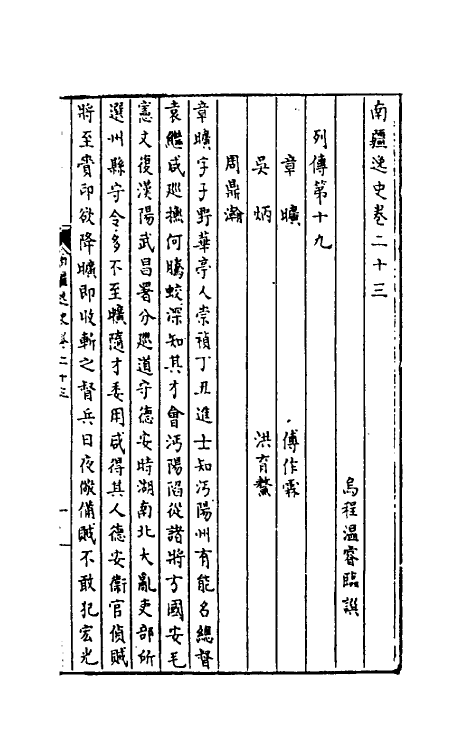 南疆逸史卷二十三
烏程溫睿臨譔
列傳第十九
章曠 傅作霖
吳炳 洪育鰲
周鼎瀚
章曠字子野華亭人崇禎丁丑進士知沔陽州有能名總督
袁繼咸廵撫何騰蛟深知其才會沔陽陷從諸將方國安毛
憲文復漢陽武昌署分廵道守德安時湖南北大亂吏部所
選州縣守令多不至曠隨才委用咸得其人德安衛官偵賊
將至賫印欲降曠即收斬之督兵日夜儆備賊不敢犯宏光
南疆逸史卷二十三
一